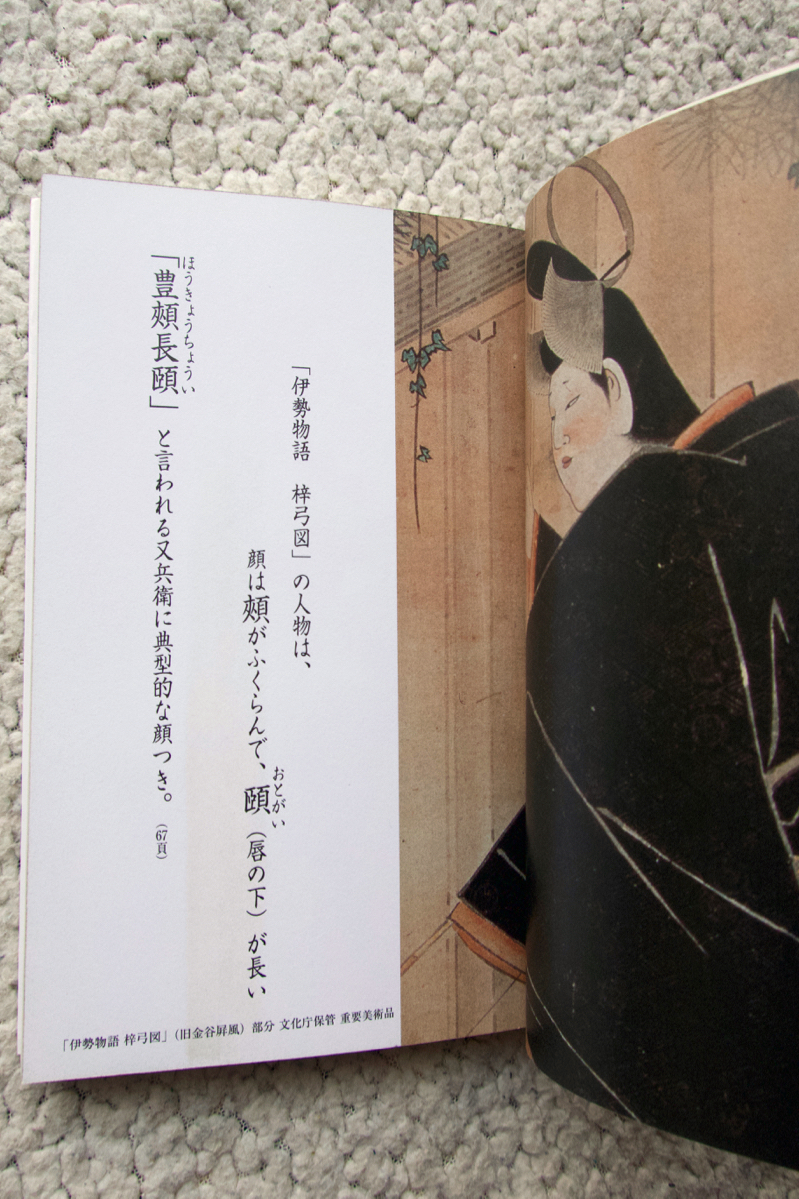 「伊勢物語　梓弓図」の人物は、
顔は頰がふくらんで、頤（唇の下）が長い
おとがい
「豊頰長頤」と言われる又兵衛に典型的な顔つき。（67頁）
ほうきょうちょうい
「伊勢物語 梓弓図」（旧金谷屛風）部分 文化庁保管 重要美術品